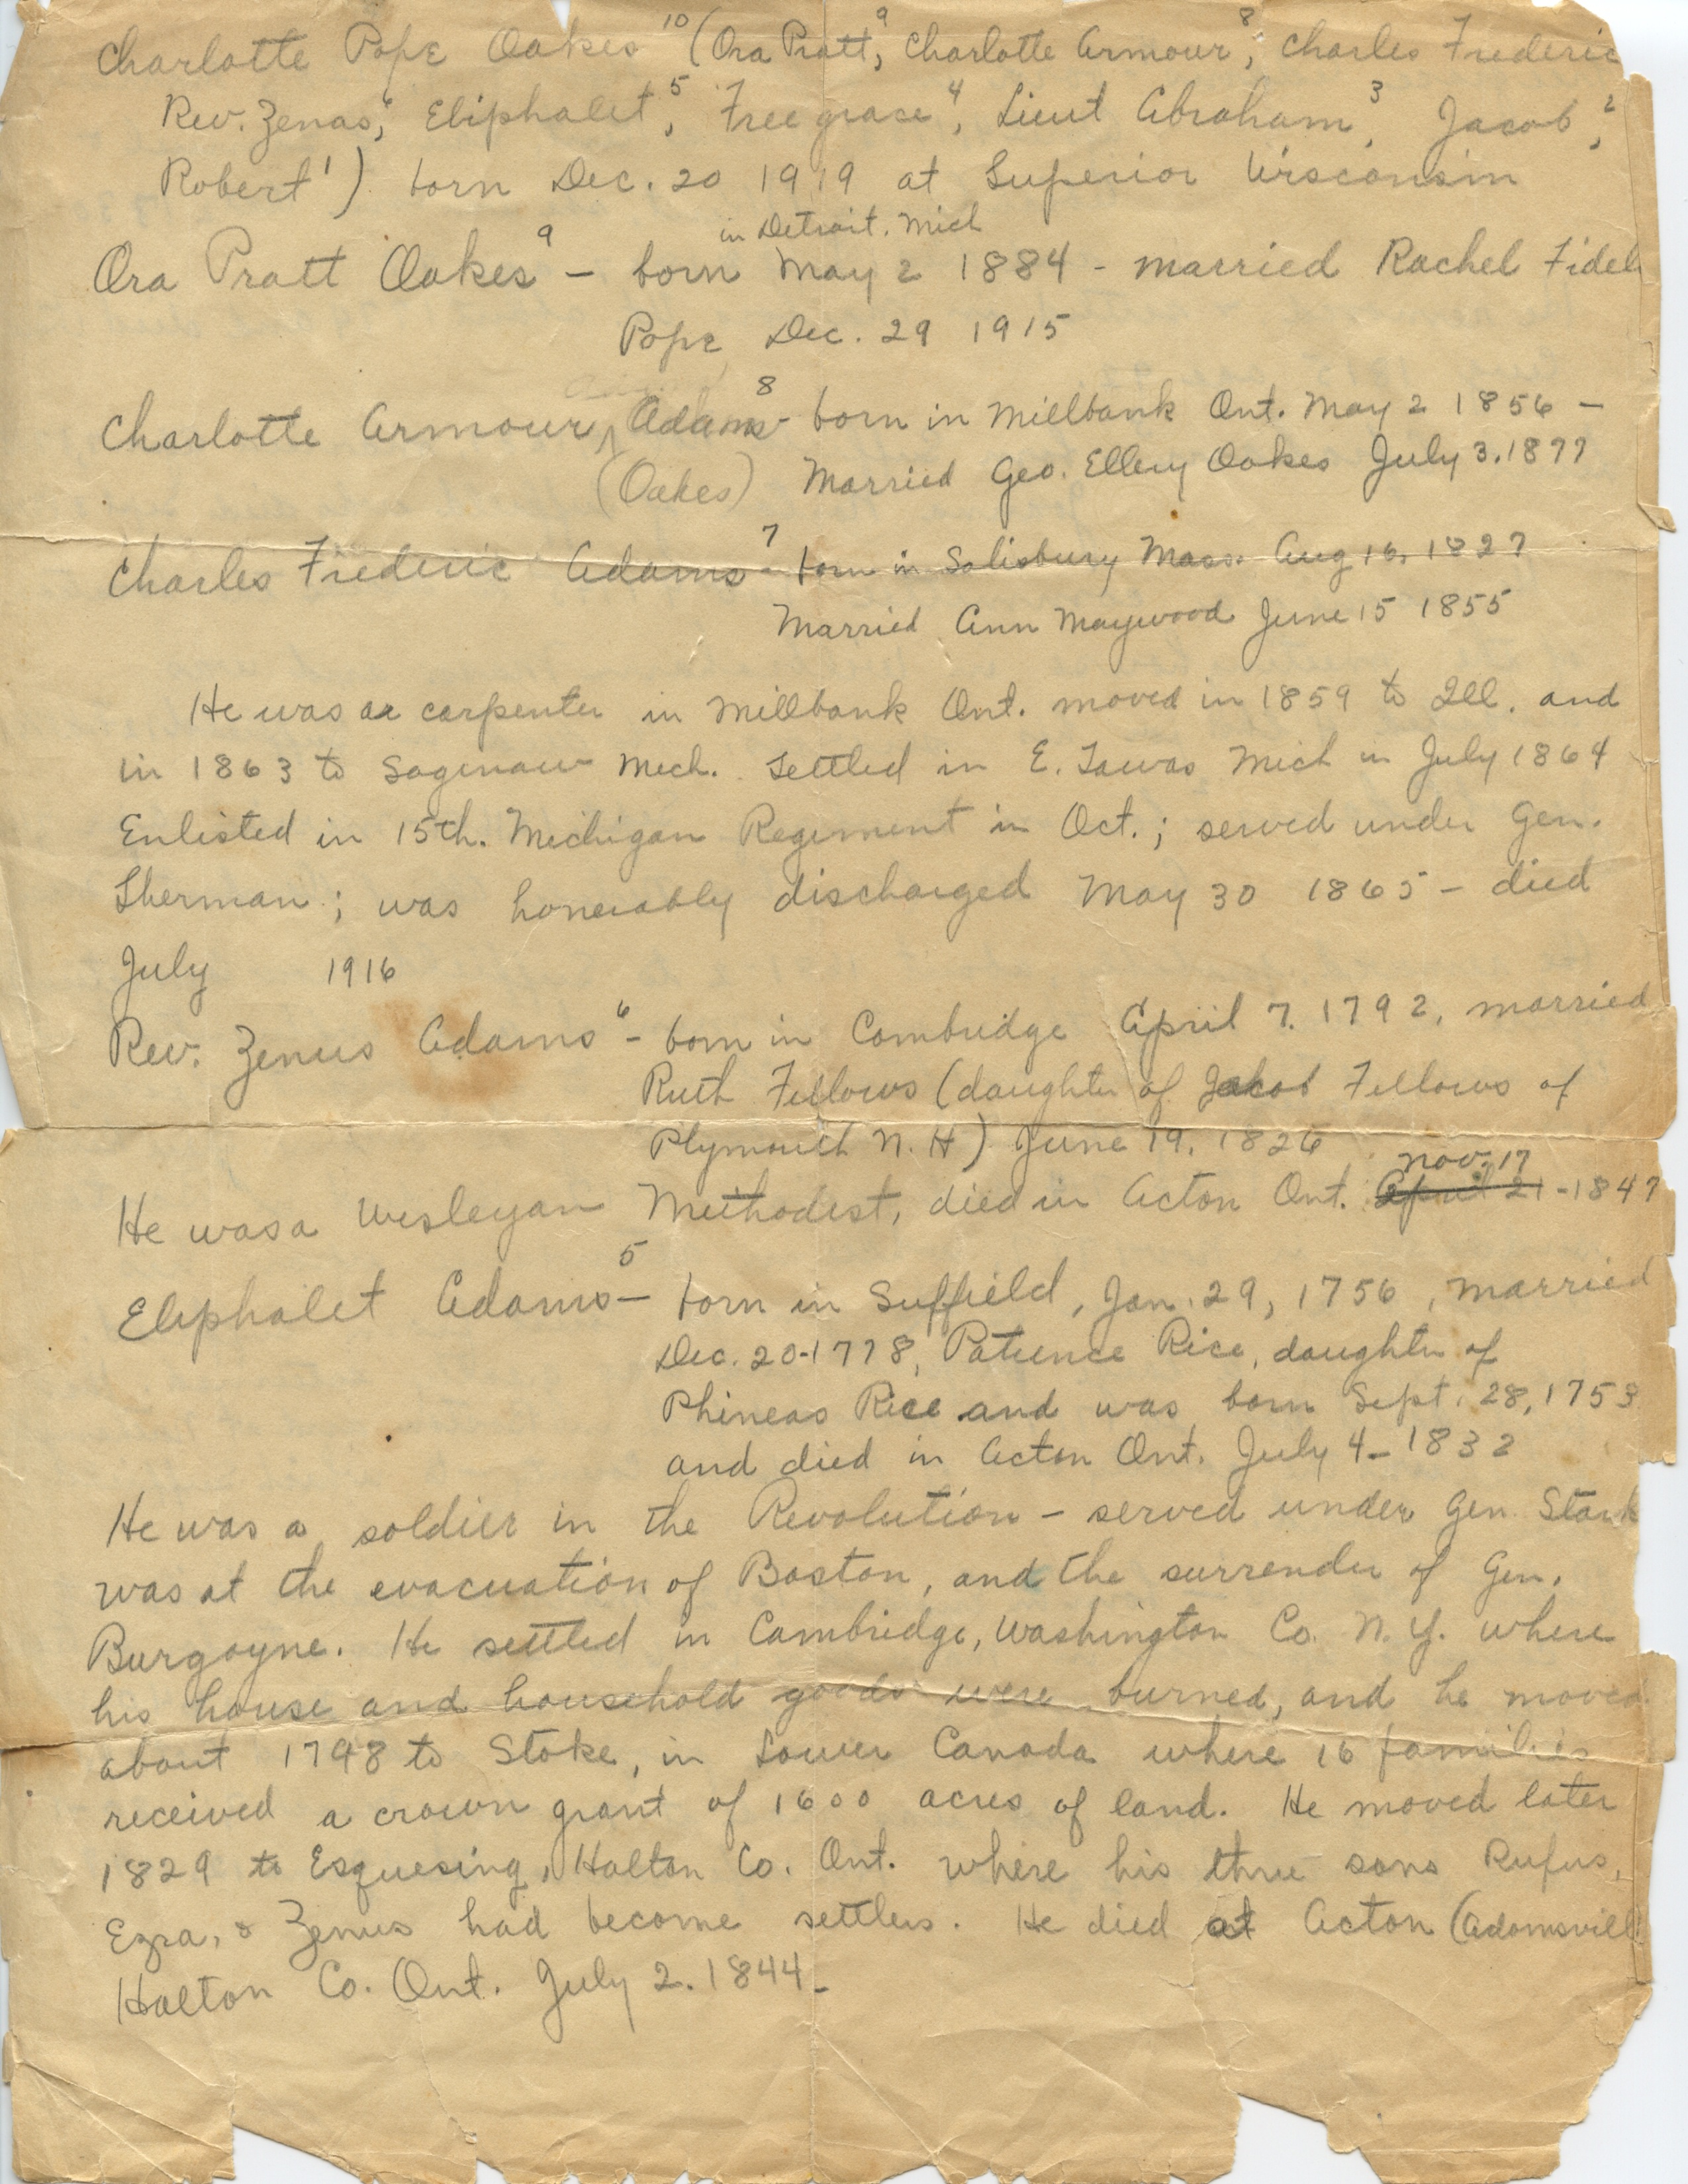 Charlotte Pope Oakes¹⁰ (Ora Pratt,⁹ Charlotte Armour,⁸ Charles Frederic
Rev. Zenas,⁶ Eliphalet,⁵ Freegrace⁴, Lieut Abraham,³ Jacob,²
Robert¹) born Dec. 20 1919 at Superior Wisconsin
in Detroit. Mich
Ora Pratt Oakes⁹ – born May 2 1884 - married Rachel Fidel
Pope Dec. 29 1915
Charlotte Armour Adams⁸ - born in Millbank Ont. May 2 1856 –
(Oakes) Married Geo. Ellery Oakes July 3. 1877
Charles Frederic Adams⁷ - born in Solisbury Mass. Aug 16. 1827
Married Ann Maywood June 15 1855
He was a carpenter in Millbank Ont. moved in 1859 to Ill. and
in 1863 to Saginaw Mich. Settled in E. Tawas Mich in July 1864
Enlisted in 15th. Michigan Regiment in Oct.; served under Gen.
Sherman; was honerably discharged May 30 1865 – died
July 1916
Rev. Zenus Adams⁶ - born in Cambridge April 7. 1792, married
Ruth Fellows (daughter of Jacob Fellows of
Plymouth N. H) June 19. 1826
Nov. 17
He was a Wesleyan Methodist, died in Acton Ont. April 21 - 1847
Eliphalet Adams⁵ – born in Suffield, Jan. 29, 1756, married
Dec. 20-1778, Patience Rice, daughter of
Phineas Rice and was born Sept. 28, 1753
and died in Acton Ont. July 4 - 1832
He was a soldier in the Revolution – served under Gen Stark
was at the evacuation of Boston, and the surrender of Gen.
Burgoyne. He settled in Cambridge, Washington Co. N. Y. where
his house and household goods were burned, and he moved
about 1798 to Stoke, in Lower Canada where 16 families
received a crown grant of 1600 acres of land. He moved later
1829 to Esquesing, Halton Co. Ont. where his three sons Rufus,
Ezra, & Zenus had become settlers. He died at Acton (Adamsvill
Halton Co. Ont. July 2. 1844 –